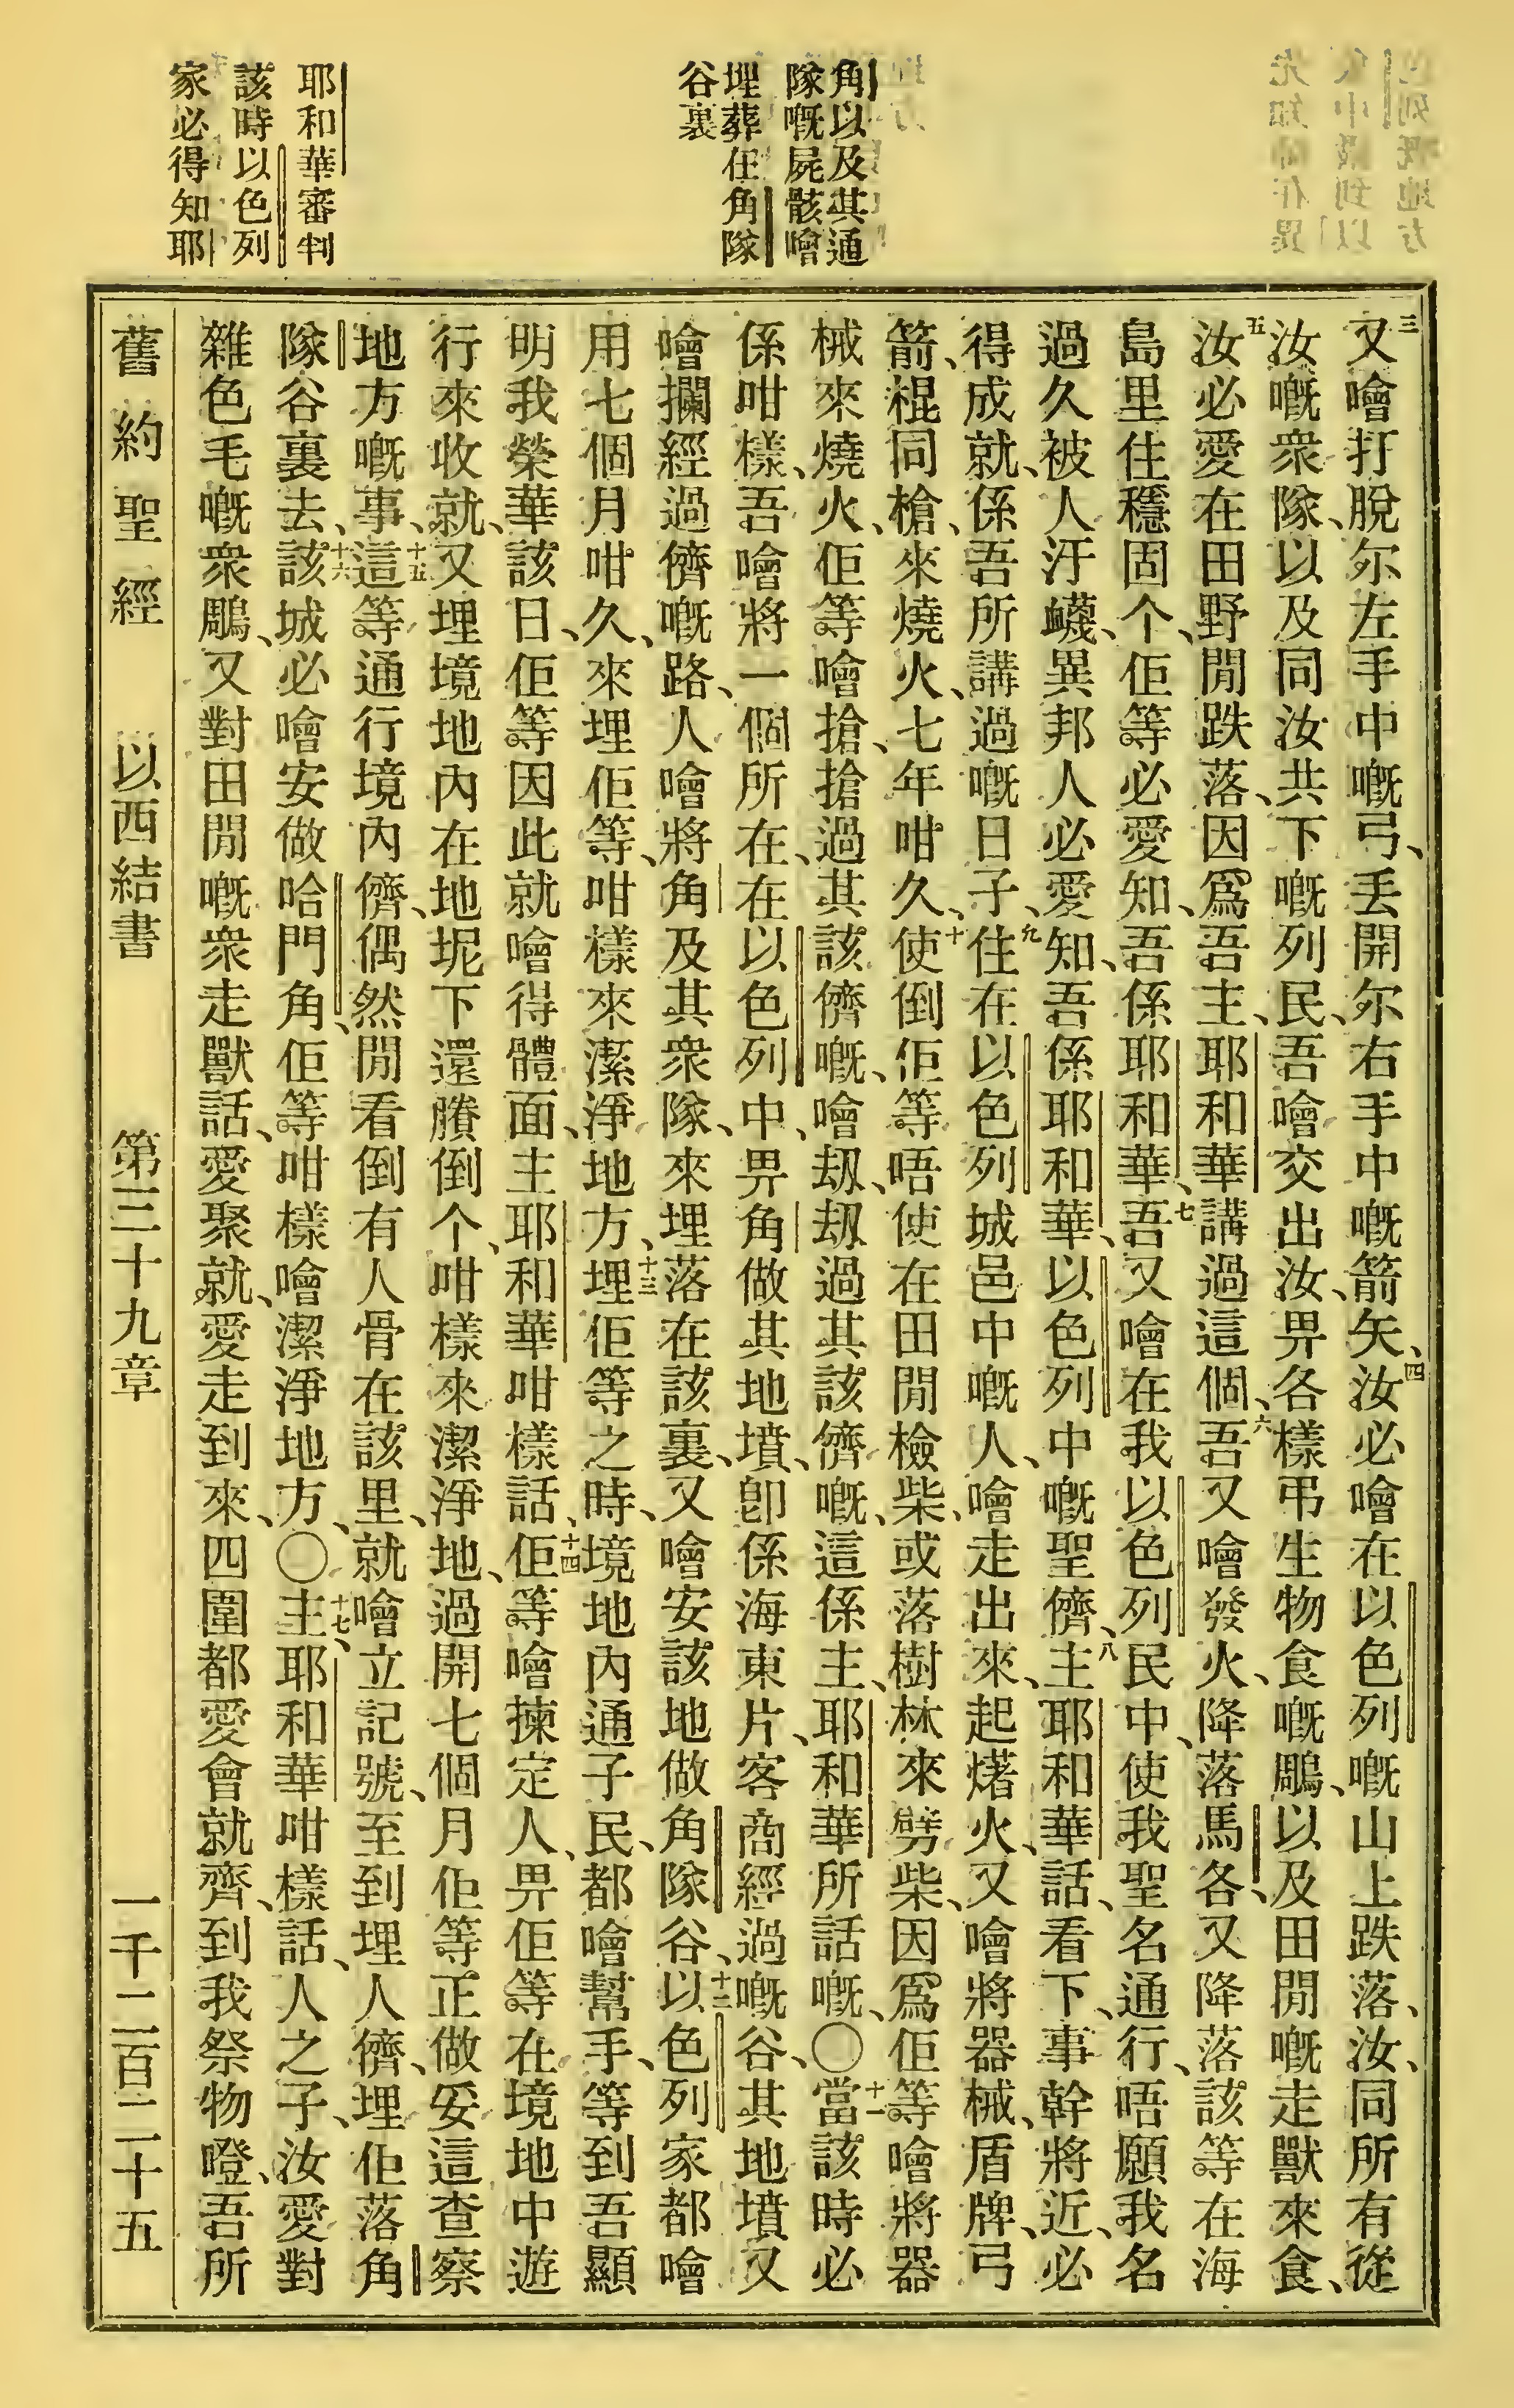 角以及其通
隊嘅屍骸噲
埋葬在角隊
谷裏
耶和華審判
該時以色列
家必得知耶
三又噲打脫尔左手中嘅弓、丢開尔右手中嘅箭矢、四汝必噲在以色列嘅山上跌落、汝、同所有從
汝嘅衆隊、以及同汝共下嘅列民、吾噲交出汝、畀各樣弔生物食嘅鵰、以及田閒嘅走獸來食、
五汝必愛在田野閒跌落、因爲吾主、耶和華講過這個、六吾又噲發火、降落馬各、又降落該等在海
島里住穩固个、佢等必愛知、吾係耶和華、七吾又噲在我以色列民中、使我聖名通行、唔願我名
過久被人汙衊、異邦人必愛知、吾係耶和華、以色列中嘅聖儕、八主耶和華話、看下、事幹將近、必
得成就、係吾所講過嘅日子、九住在以色列城邑中嘅人、噲走出來、起㷮火、又噲將器械、盾牌、弓
箭、棍同槍、來燒火、七年咁久、十使倒佢等唔使在田閒檢柴、或落樹林來劈柴、因爲佢等噲將器
械來燒火、佢等噲搶、搶過其該儕嘅、噲刼、刼過其該儕嘅、這係主、耶和華所話嘅、〇十一當該時必
係咁樣、吾噲將一個所在、在以色列中、畀角做其地墳、卽係海東片、客商經過嘅谷、其地墳又
噲攔經過儕嘅路、人噲將角及其衆隊、來埋落在該裏、又噲安該地做角隊谷、十二以色列家都噲
用七個月咁久、來埋佢等、咁樣來潔淨地方、十三埋佢等之時、境地內通子民、都噲幫手、等到吾顯
明我榮華該日、佢等因此就噲得體面、主耶和華咁樣話、十四佢等噲揀定人、畀佢等在境地中遊
行來收就、又埋境地內在地坭下還賸倒个、咁樣來潔淨地、過開七個月佢等正做妥這查察
地方嘅事、十五這等通行境內儕、偶然閒看倒有人骨在該里、就噲立記號、至到埋人儕、埋佢落角
隊谷裏去、十六該城必噲安做哈門角、佢等咁樣噲潔淨地方、〇十七主、耶和華咁樣話、人之子、汝愛對
雜色毛嘅衆鵰、又對田閒嘅衆走獸話、愛聚就、愛走到來、四圍都愛會就齊、到我祭物嘡、吾所
舊約聖經 以西結書 第三十九章 一千二百二十五